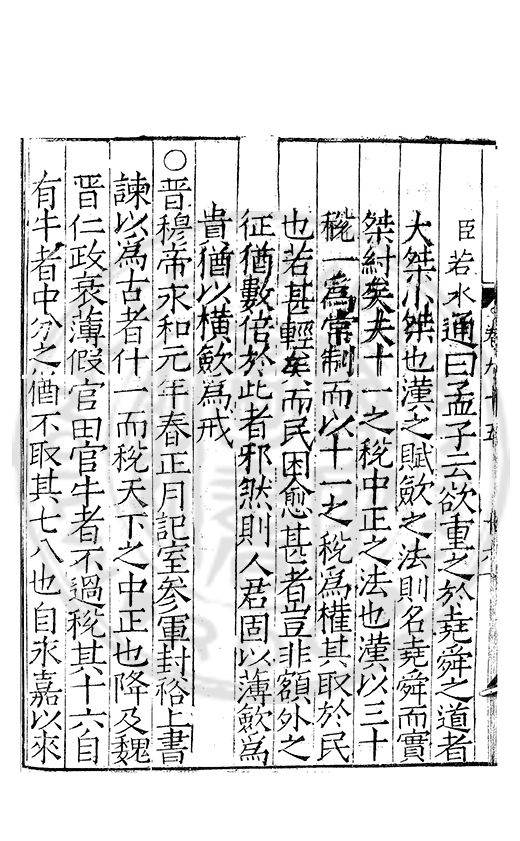 臣若水通曰孟子云欲重之於堯舜之道者
大桀小桀也漢之賦斂之法則名堯舜而實
桀紂矣夫十一之稅中正之法也漢以三十
稅一為常制而以十一之稅為權其取於民
也若甚輕矣而民困愈甚者豈非額外之
征猶數倍於此者邪然則人君固以薄斂為
貴猶以橫斂為戒
○晉穆帝永和元年春正月記室參軍封裕上書
諫以為古者什一而稅天下之中正也降及魏
晉仁政衰薄假官田官牛者不過稅其十六自
有牛者中分之猶不取其七八也自永嘉以來
卷九十五